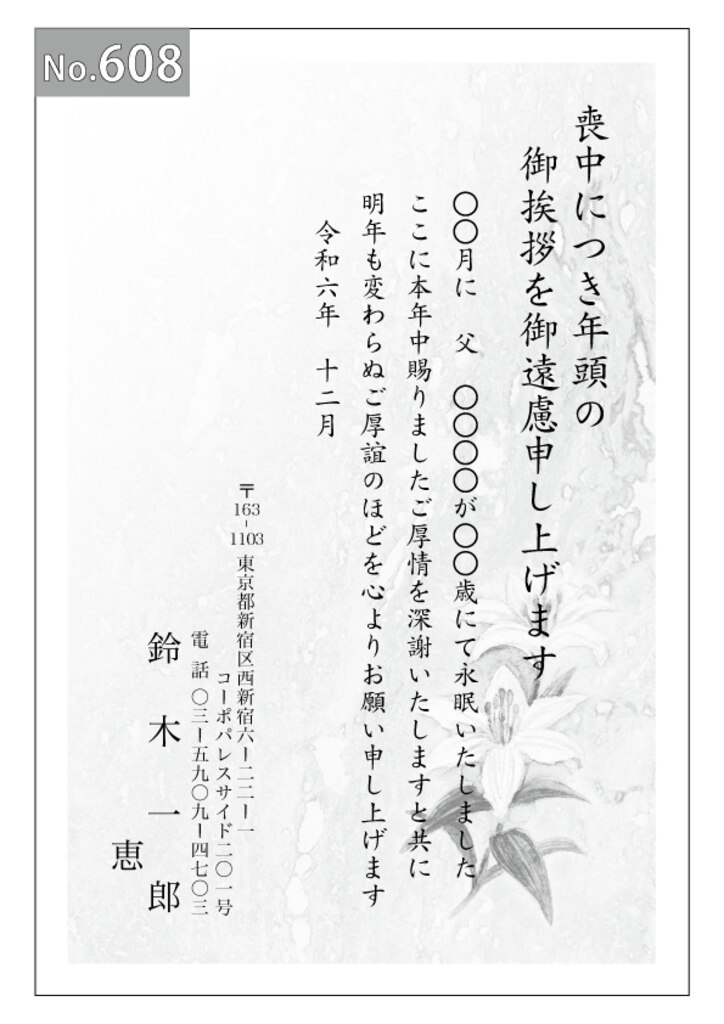 No.608
喪中につき年頭の
御挨拶を御遠慮申し上げます
〇〇月に　父　〇〇〇〇が〇〇歳にて永眠いたしました
ここに本年中賜りましたご厚情を深謝いたしますと共に
明年も変わらぬご厚誼のほどを心よりお願い申し上げます
令和六年　十二月
〒163-1103 東京都新宿区西新宿六ー二二ー一
コーポパレスサイド二〇一号
電話 〇三ー五九〇九ー四七〇三
鈴木一郎
恵